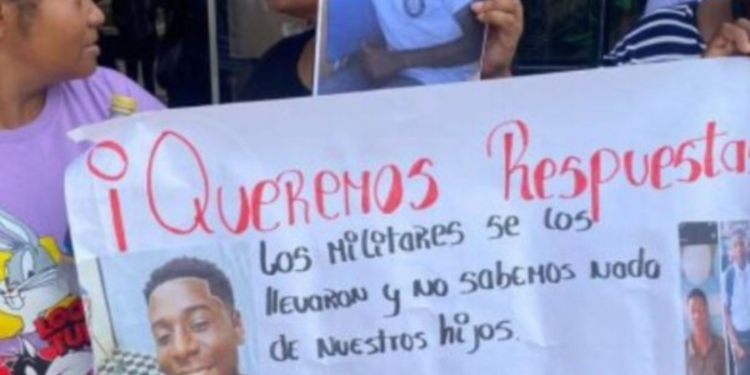 ¡QUEREMOS RESPUESTA
LOS MILITARES SE LOS
LLEVARON Y NO SABEMOS NADA
DE NUESTROS HIJOS.
LOO
TU